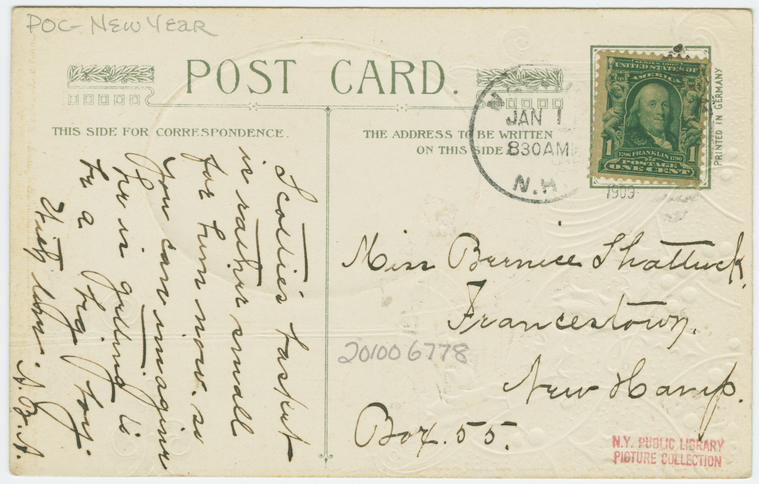 POC- NEW YEAR
POST CARD.
THIS SIDE FOR CORRESPONDENCE.
THE ADDRESS TO BE WRITTEN
ON THIS SIDE
JAN 1
830AM
N.H.
1909
SERIES 1902
UNITED STATES OF
AMERICA
1 FRANKLIN 1
POSTAGE
ONE CENT
PRINTED IN GERMANY
Scottie's basket
is rather small
for him now. so
you can imagine
he is getting to
be a big boy.
With love. A.B.A.
Miss Bernice Shattuck.
Francestown,
New Hamp.
Box. 55.
201006778
N.Y. PUBLIC LIBRARY
PICTURE COLLECTION